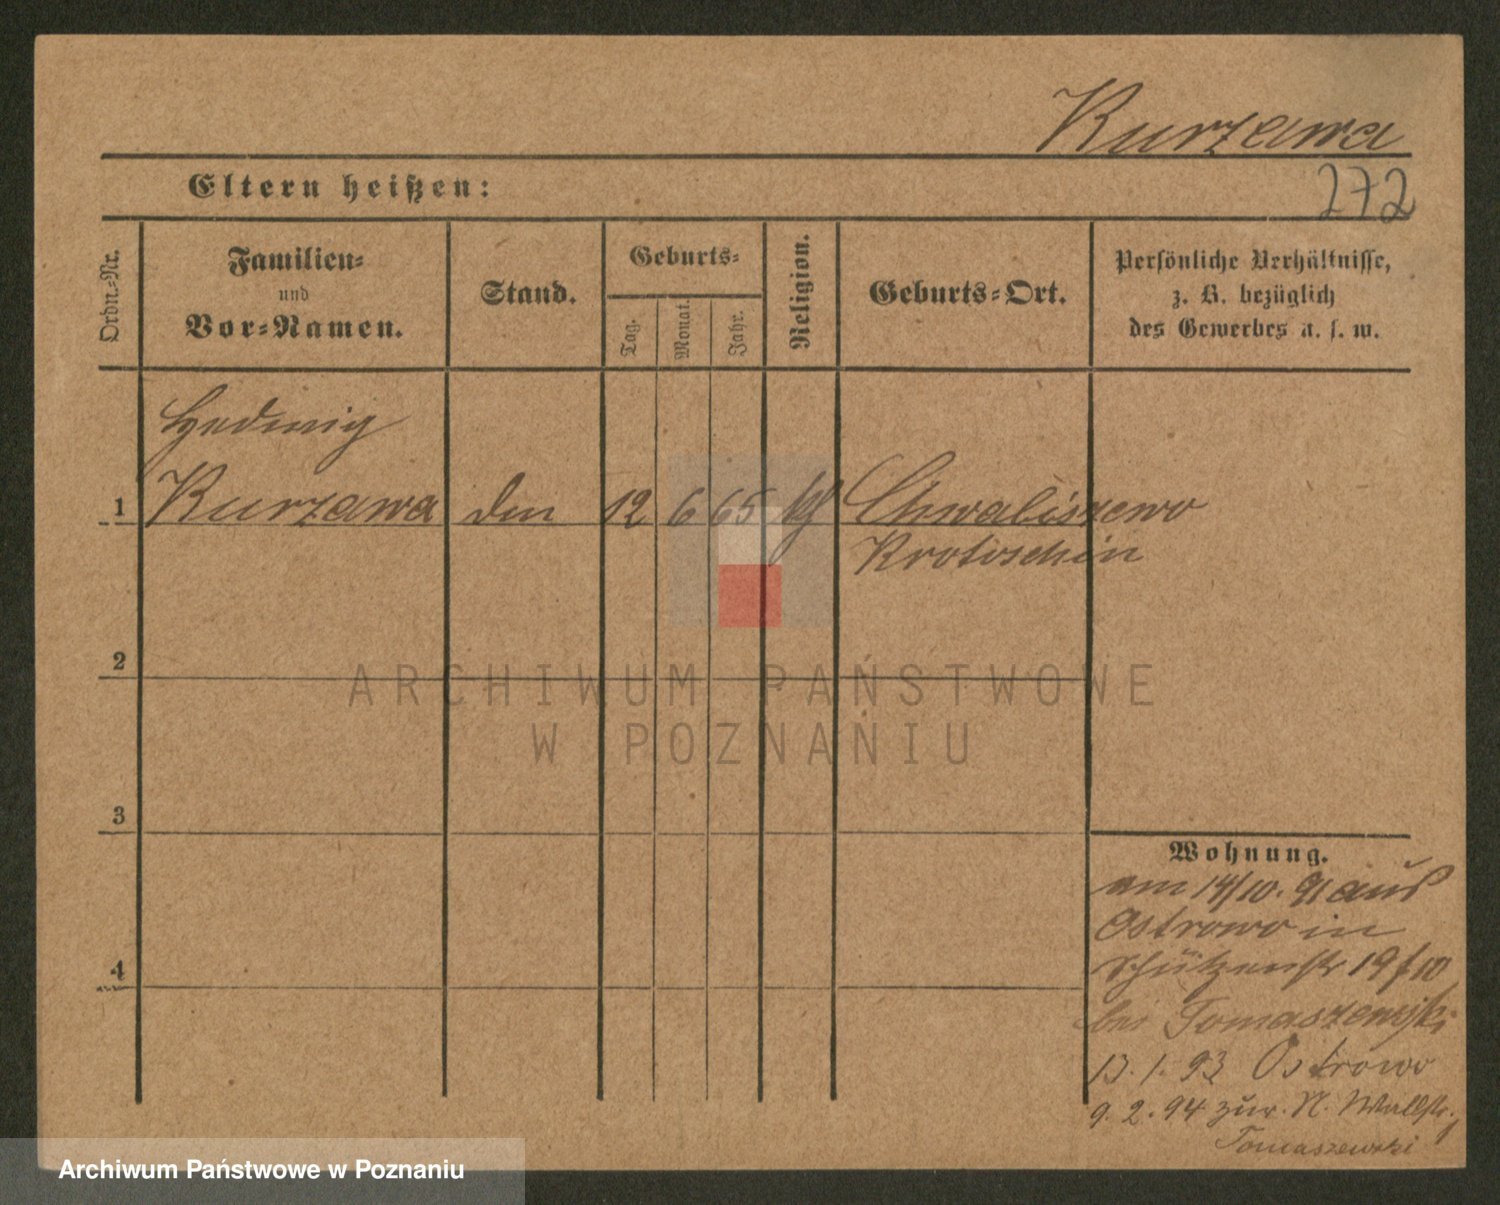 Kurzawa
Eltern heißen:
272
Ordn.-Nr.
Familien-
und
Vor-Namen.
Stand.
Geburts-
Tag.
Monat.
Jahr.
Religion.
Geburts-Ort.
Persönliche Verhältnisse,
z. B. bezüglich
des Gewerbes u. s. w.
Hedwig
1 Kurzawa den 12 6 65 Chwaliszewo
Krotoschin
2
3
4
Wohnung.
am 14/10. 91 aus
Ostrowo in
Schützenstr 19 f 10
bei Tomaszewski
13. 1. 93 Ostrowo
9. 2. 94 zur. N. Wallstr. 1
Tomaszewski
ARCHIWUM PAŃSTWOWE
W POZNANIU
Archiwum Państwowe w Poznaniu